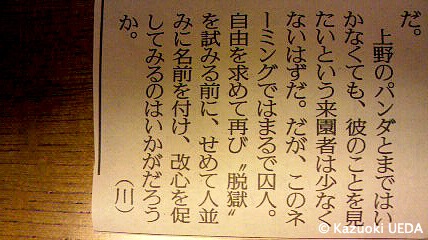 だ。
上野のパンダとまではい
かなくても、彼のことを見
たいという来園者は少なく
ないはずだ。だが、このネ
ーミングではまるで囚人。
自由を求めて再び〝脱獄〟
を試みる前に、せめて人並
みに名前を付け、改心を促
してみるのはいかがだろう
か。
（川）
© Kazuoki UEDA